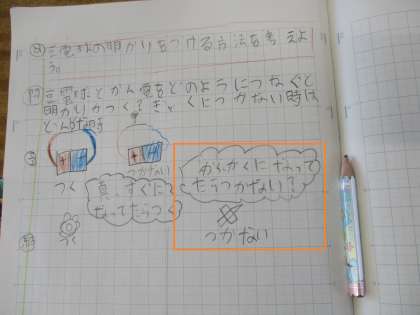 豆電球の明かりをつける方法を考えよ
う。
問 豆電球とかん電をどのようにつなぐと
明かりがつく?ぎゃくにつかない時は
どんな時
つく
つかない
真っすぐに
なってたらつく
がくがくになって
たらつかない?
つく
つかない